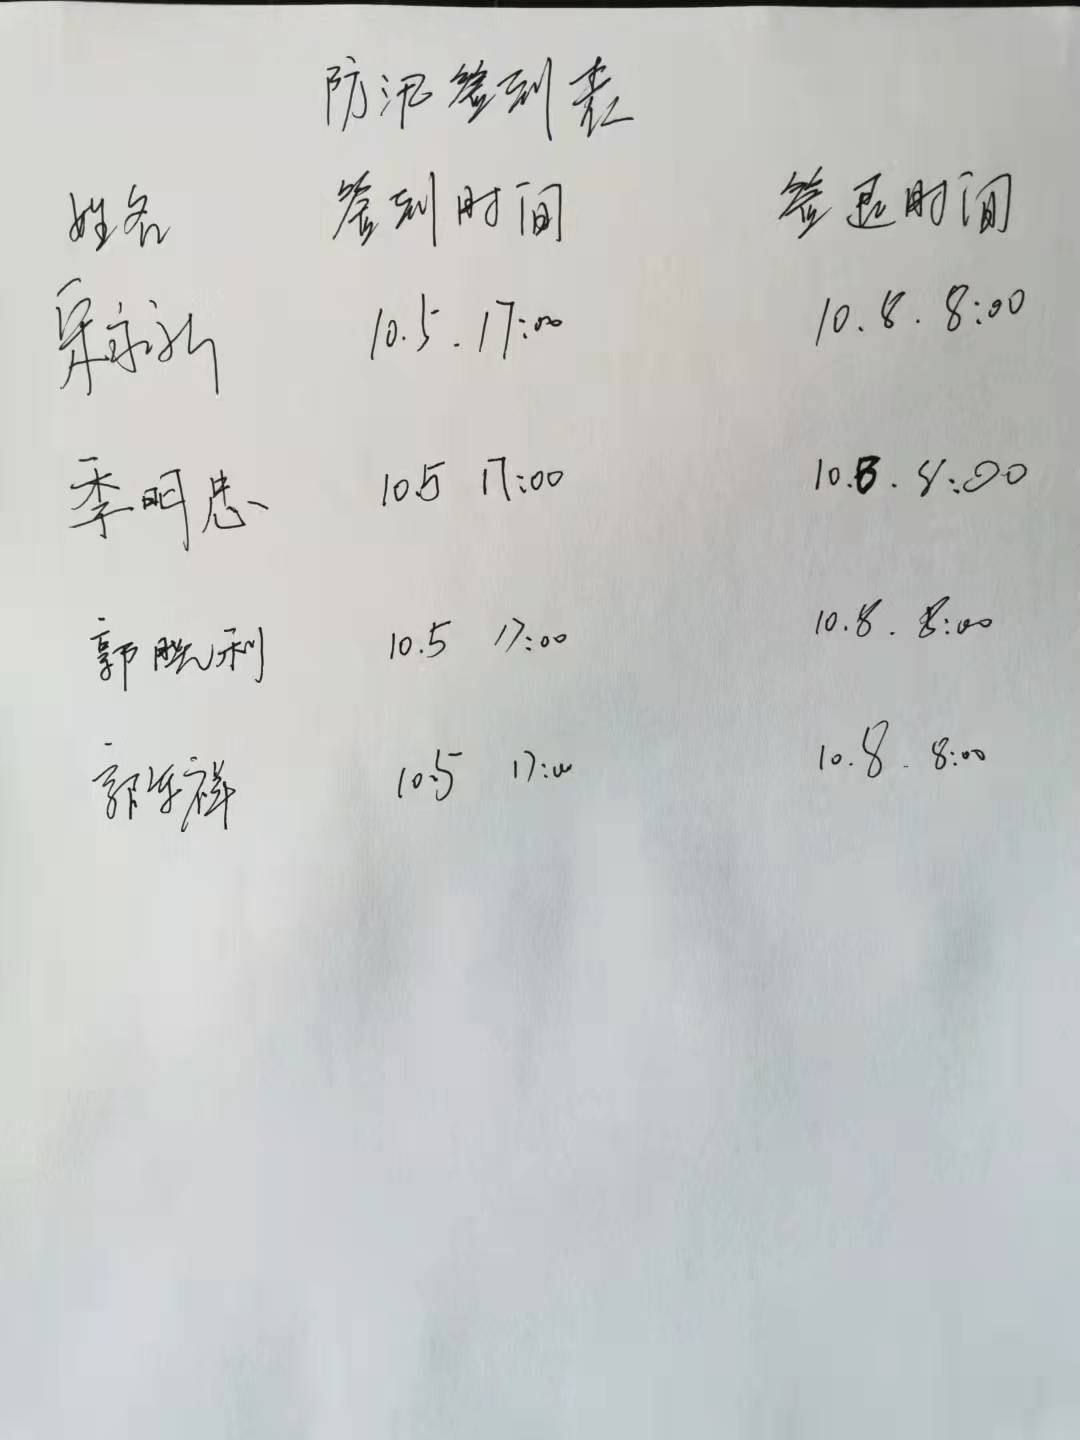 防汛签到表
姓名 签到时间 签退时间
永 10.5. 17:00 10.8. 8:00
季明忠 10.5 17:00 10.8. 8:00
郭胜利 10.5 17:00 10.8. 8:00
郭东祥 10.5 17:00 10.8. 8:00